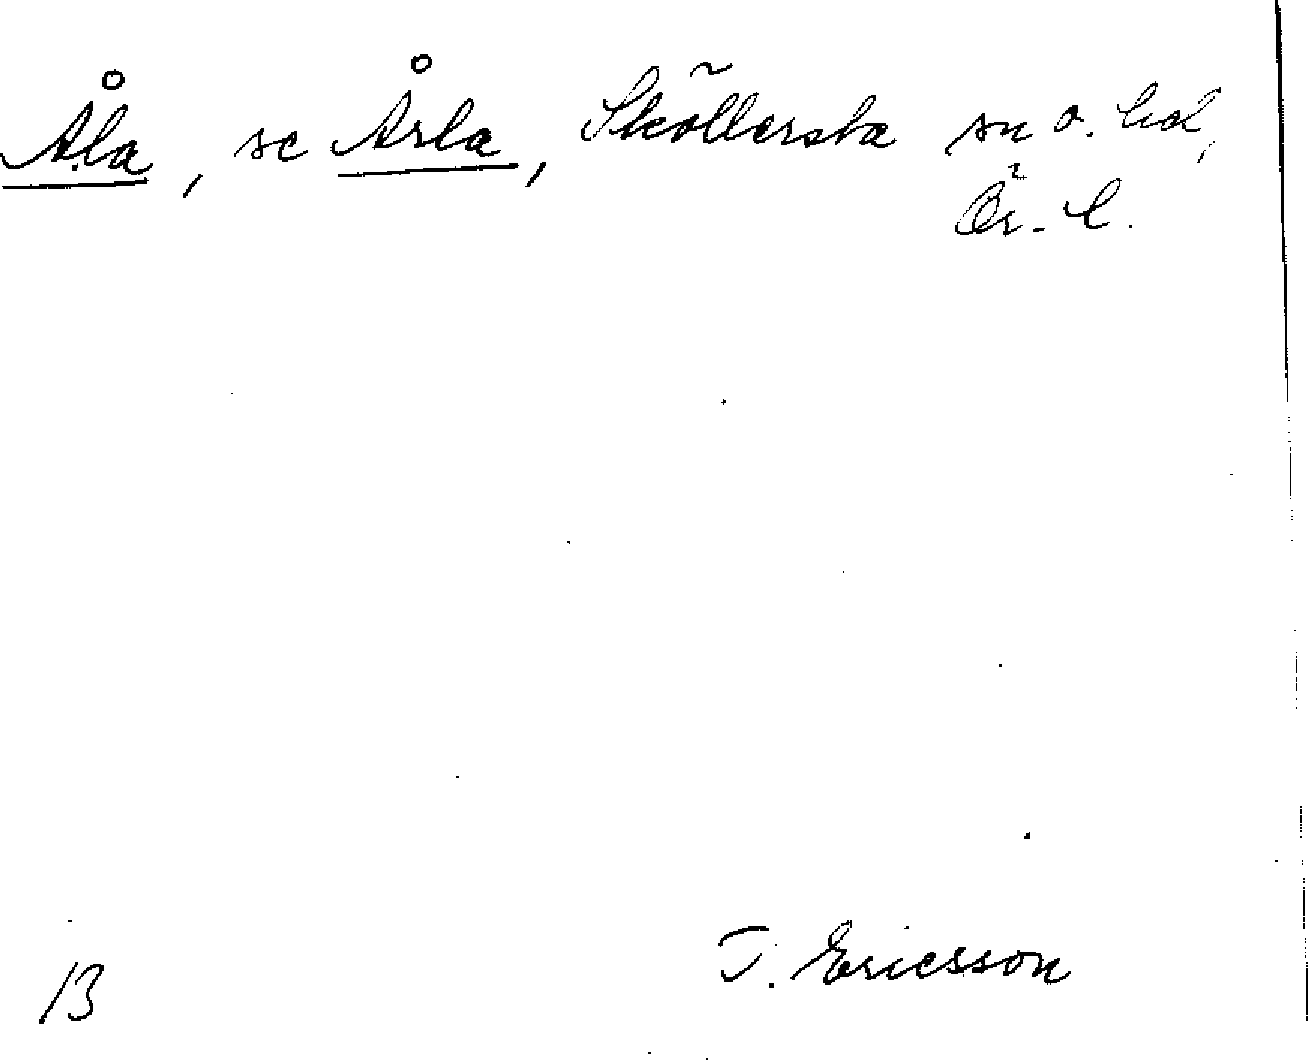 Åla, se Årla, Sköllersta sn o. hd,
Ör. l.
T. Ericsson
13